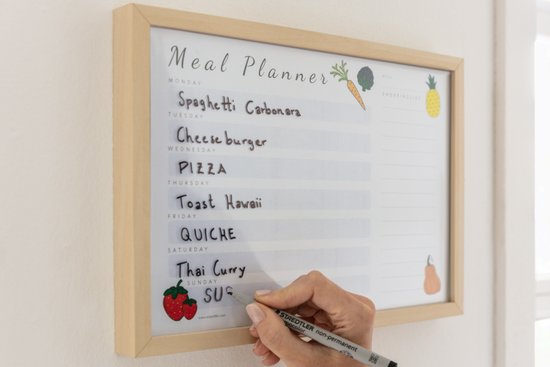 Meal Planner
MONDAY
Spaghetti Carbonara
TUESDAY
Cheeseburger
WEDNESDAY
PIZZA
THURSDAY
Toast Hawaii
FRIDAY
QUICHE
SATURDAY
Thai Curry
SUNDAY
SUS
SHOPPINGLIST
STAEDTLER non-permanent